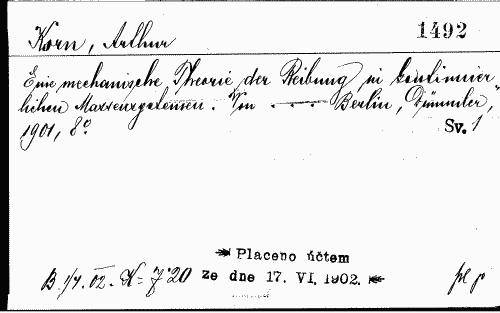 1492
Korn, Arthur
Eine mechanische Theorie der Reibung in kontinuier-
lichen Massensystemen. Von ---- Berlin, Dümmler,
1901, 8° Sv. 1
Placeno účtem
B. 1/4. 02. K- 7·20 ze dne 17. VI. 1902. pl p